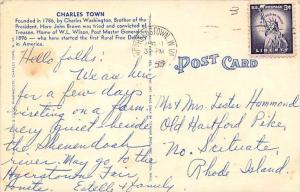 CHARLES TOWN
Founded in 1786, by Charles Washington, Brother of the
President. Here John Brown was tried and convicted of
Treason. Home of W.L. Wilson, Post Master General
1896 - who here started the first Rural Free Delivery
in America.
Hello folks:
We are here
for a few days
visiting on a farm
very quiet beside
the Shenendoah
river. May go to the
Hagerstown Fair
Estelle & Family
POST CARD
U.S. POSTAGE 3¢
LIBERTY
PM
Mr & Mrs. Lester Hammond
Old Hartford Pike
No. Scituate,
Rhode Island